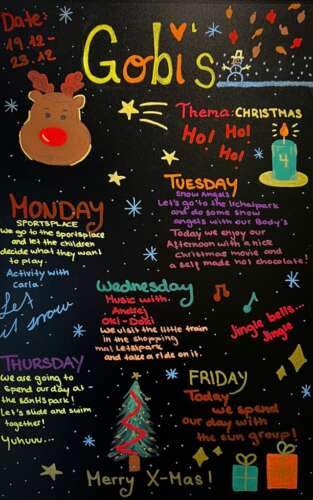 Date:
19.12-
23.12
Gobi's
Thema: CHRISTMAS
Ho! Ho!
Ho!
4
MONDAY
SPORTSPLACE
We go to the Sportsplace
and let the children
decide what they want
to play.
Activity with
Carla.
Let
it snow
TUESDAY
Snow Angels
Let's go to the Irchelpark
and do some snow
angels with our Body's
Today we enjoy our
Afternoon with a nice
Christmas movie and
a self made hot chocolate!
Wednesday
Music with
Andrej
Oki-Doki
We visit the little train
in the shopping
mal Letzipark
and take a ride on it.
Jingle bells...
Jingle
THURSDAY
We are going to
Spend our day at
the Säntispark!
Let's slide and swim
together!
Yuhuu...
FRIDAY
Today
we spend
our day with
the sun group!
Merry X-Mas!